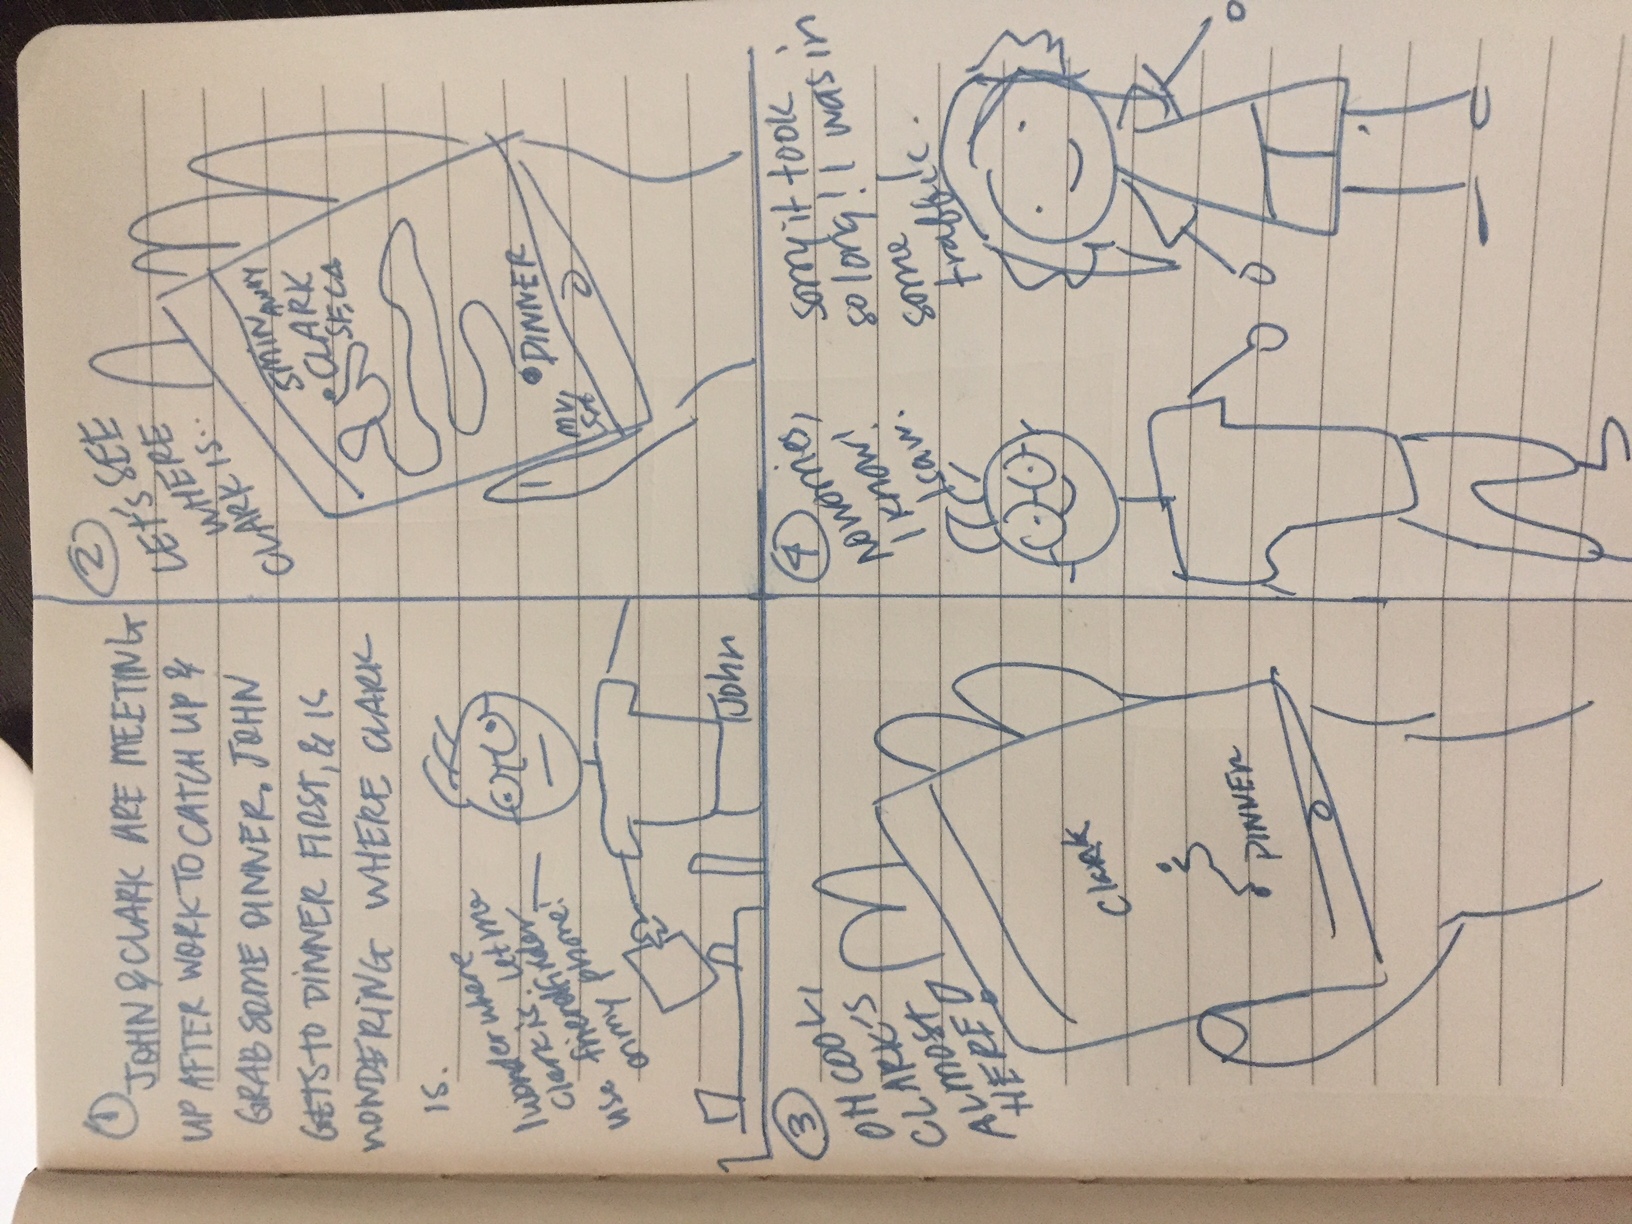 1
JOHN & CLARK ARE MEETING
UP AFTER WORK TO CATCH UP &
GRAB SOME DINNER. JOHN
GETS TO DINNER FIRST, & IS
WONDERING WHERE CLARK
IS.
I wonder where
Clark is. Let me
use friendfinder
on my phone!
John
2
LET'S SEE
WHERE
CLARK IS..
5MIN AWAY
CLARK
SF, CA
DINNER
3
OH COOL,
CLARK'S
ALMOST
HERE!
Clark
DINNER
4
No worries,
I know!
I saw.
Sorry it took
so long! I was in
some
traffic.